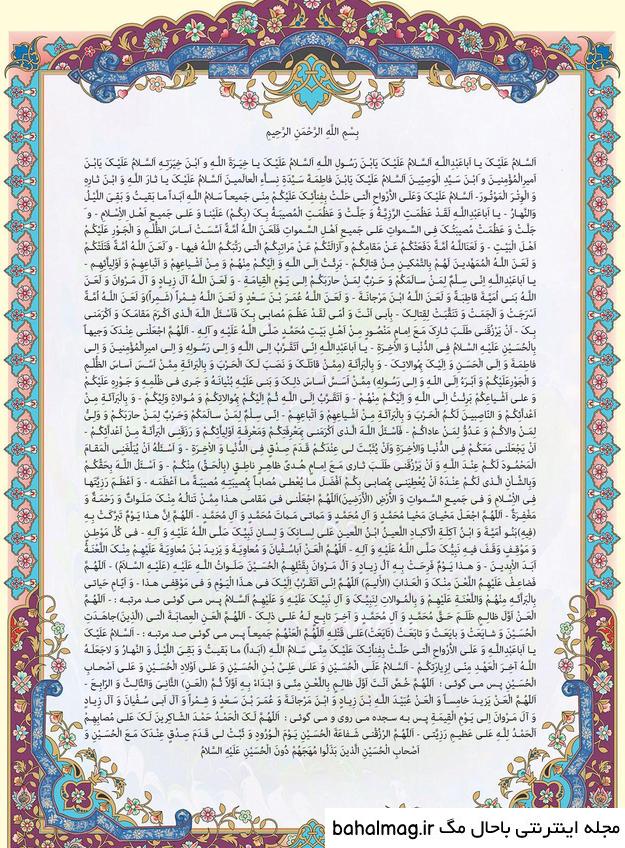 بِسْمِ اللَّهِ الرَّحْمَنِ الرَّحِيمِ
اَلسَّلامُ عَلَيْكَ يا اَباعَبْدِاللَّهِ اَلسَّلامُ عَلَيْكَ يَابْنَ رَسُولِ اللَّهِ اَلسَّلامُ عَلَيْكَ يا خِيَرَةَ اللَّهِ و َابْنَ خِيَرَتِهِ اَلسَّلامُ عَلَيْكَ يَابْنَ
اَميرِالْمُؤْمِنينَ و َابْنَ سَيِّدِ الْوَصِيّينَ اَلسَّلامُ عَلَيْكَ يَابْنَ فاطِمَةَ سَيِّدَةِ نِساءِ الْعالَمينَ اَلسَّلامُ عَلَيْكَ يا ثارَ اللَّهِ وَ ابْنَ ثارِهِ
وَ الْوِتْرَ الْمَوْتُورَ- اَلسَّلامُ عَلَيْكَ وَعَلَى الْأَرْواحِ الَّتى حَلَّتْ بِفِنائِكَ عَلَيْكُمْ مِنّى جَميعاً سَلامُ اللَّهِ اَبَداً ما بَقيتُ وَ بَقِىَ اللَّيْلُ
وَالنَّهارُ - يا اَباعَبْدِاللَّهِ لَقَدْ عَظُمَتِ الرَّزِيَّةُ وَ جَلَّتْ وَ عَظُمَتِ الْمُصيبَةُ بِكَ (بِكُمْ) عَلَيْنا وَ عَلى جَميعِ اَهْلِ الْاِسْلامِ - وَ
جَلَّتْ وَ عَظُمَتْ مُصيبَتُكَ فِى السَّمواتِ عَلى جَميعِ اَهْلِ السَّمواتِ فَلَعَنَ اللَّهُ اُمَّةً اَسَّسَتْ اَساسَ الظُّلْمِ وَ الْجَوْرِ عَلَيْكُمْ
اَهْلَ الْبَيْتِ - وَ لَعَنَ‌اللَّهُ اُمَّةً دَفَعَتْكُمْ عَنْ مَقامِكُمْ و َاَزالَتْكُمْ عَنْ مَراتِبِكُمُ الَّتى رَتَّبَكُمُ اللَّهُ فيها - و َلَعَنَ اللَّهُ اُمَّةً قَتَلَتْكُمْ
وَ لَعَنَ اللَّهُ الْمُمَهِّدينَ لَهُمْ بِالتَّمْكينِ مِنْ قِتالِكُمْ - بَرِئْتُ اِلَى اللَّهِ وَ اِلَيْكُمْ مِنْهُمْ وَ مِنْ اَشْياعِهِمْ وَ اَتْباعِهِمْ وَ اَوْلِيائِهِم -
يا اَباعَبْدِاللَّهِ اِنّى سِلْمٌ لِمَنْ سالَمَكُمْ وَ حَرْبٌ لِمَنْ حارَبَكُمْ اِلى يَوْمِ الْقِيامَةِ - وَ لَعَنَ اللَّهُ آلَ زِيادٍ وَ آلَ مَرْوانَ وَ لَعَنَ
اللَّهُ بَنى اُمَيَّةَ قاطِبَةً وَ لَعَنَ اللَّهُ ابْنَ مَرْجانَةَ - وَ لَعَنَ اللَّهُ عُمَرَ بْنَ سَعْدٍ وَ لَعَنَ اللَّهُ شِمْراً (شَمِراً)وَ لَعَنَ اللَّهُ اُمَّةً
اَسْرَجَتْ وَ اَلْجَمَتْ وَ تَنَقَّبَتْ لِقِتالِكَ - بِاَبى اَنْتَ وَ اُمّى لَقَدْ عَظُمَ مُصابى بِكَ فَاَسْئَلُ اللَّهَ الَّذى اَكْرَمَ مَقامَكَ وَ اَكْرَمَنى
بِكَ - اَنْ يَرْزُقَنى طَلَبَ ثارِكَ مَعَ اِمامٍ مَنْصُورٍ مِنْ اَهْلِ بَيْتِ مُحَمَّدٍ صَلَّى اللَّهُ عَلَيْهِ وَ آلِهِ - اَللّهُمَّ اجْعَلْنى عِنْدَكَ وَجيهاً
بِالْحُسَيْنِ عَلَيْهِ السَّلامُ فِى الدُّنْيا وَ الْآخِرَةِ - يا اَباعَبْدِاللَّهِ اِنى اَتَقَرَّبُ اِلى اللَّهِ وَ اِلى رَسُولِهِ وَ اِلى اميرِالْمُؤْمِنينَ وَ اِلى
فاطِمَةَ وَ اِلَى الْحَسَنِ وَ اِلَيْكَ بِمُوالاتِكَ - وَ بِالْبَرائَةِ (مِمَّنْ قاتَلَكَ وَ نَصَبَ لَكَ الْحَرْبَ وَ بِالْبَرائَةِ مِمَّنْ اَسَّسَ اَساسَ الظُّلْمِ
وَ الْجَوْرِعَلَيْكُمْ وَ اَبْرَءُ اِلَى اللّهِ وَ اِلى رَسُولِهِ) مِمَّنْ اَسَسَّ اَساسَ ذلِكَ وَ بَنى عَلَيْهِ بُنْيانَهُ وَ جَرى فى ظُلْمِهِ وَ جَوْرِهِ عَلَيْكُمْ
وَ على اَشْياعِكُمْ بَرِئْتُ اِلَى اللَّهِ وَ اِلَيْكُمْ مِنْهُمْ - وَ اَتَقَرَّبُ اِلَى اللَّهِ ثُمَّ اِلَيْكُمْ بِمُوالاتِكُمْ وَ مُوالاةِ وَلِيِّكُمْ - وَ بِالْبَرائَةِ مِنْ
اَعْدائِكُمْ وَ النّاصِبينَ لَكُمُ الْحَرْبَ وَ بِالْبَرائَةِ مِنْ اَشْياعِهِمْ وَ اَتْباعِهِمْ - اِنّى سِلْمٌ لِمَنْ سالَمَكُمْ وَحَرْبٌ لِمَنْ حارَبَكُمْ وَ وَلِىٌّ
لِمَنْ والاكُمْ وَ عَدُوٌّ لِمَنْ عاداكُمْ - فَاَسْئَلُ اللَّهَ الَّذى اَكْرَمَنى بِمَعْرِفَتِكُمْ وَمَعْرِفَةِ اَوْلِيائِكُمْ وَ رَزَقَنِى الْبَرائَةَ مِنْ اَعْدائِكُمْ -
اَنْ يَجْعَلَنى مَعَكُمْ فِى الدُّنْيا وَالْآخِرَةِ وَاَنْ يُثَبِّتَ لى عِنْدَكُمْ قَدَمَ صِدْقٍ فِى الدُّنْيا وَ الْآخِرَةِ - وَ اَسْئَلُهُ اَنْ يُبَلِّغَنِى الْمَقامَ
الْمَحْمُودَ لَكُمْ عِنْدَ اللَّهِ وَ اَنْ يَرْزُقَنى طَلَبَ ثارى مَعَ اِمامٍ هُدىً ظاهِرٍ ناطِقٍ (بِالْحَقِّ) مِنْكُمْ - وَ اَسْئَلُ اللَّهَ بِحَقِّكُمْ
وَبِالشَّاْنِ الَّذى لَكُمْ عِنْدَهُ اَنْ يُعْطِيَنى بِمُصابى بِكُمْ اَفْضَلَ ما يُعْطى مُصاباً بِمُصيبَتِهِ مُصيبَةً ما اَعْظَمَه - وَ اَعْظَمَ رَزِيَّتَها
فِى الْاِسْلامِ وَ فى جَميعِ السَّمواتِ وَ الْاَرْضِ (الْأَرَضينَ)اَللّهُمَّ اجْعَلْنى فى مَقامى هذا مِمَّنْ تَنالُهُ مِنْكَ صَلَواتٌ وَ رَحْمَةٌ وَ
مَغْفِرَةٌ - اَللّهُمَّ اجْعَلْ مَحْياىَ مَحْيا مُحَمَّدٍ وَ آلِ مُحَمَّدٍ وَ مَماتى مَماتَ مُحَمَّدٍ وَ آلِ مُحَمَّدٍ - اَللّهُمَّ اِنَّ هذا يَوْمٌ تَبَرَّكَتْ بِهِ
(فيهِ)بَنُو اُمَيَّةَ وَ ابْنُ آكِلَةِ الْاَكبادِ اللَّعينُ ابْنُ اللَّعينِ عَلى لِسانِكَ وَ لِسانِ نَبِيِّكَ صَلَّى اللَّهُ عَلَيْهِ وَ آلِهِ - فى كُلِّ مَوْطِنٍ
وَ مَوْقِفٍ وَقَفَ فيهِ نَبِيُّكَ صَلَّى اللَّهُ عَلَيْهِ وَ آلِهِ - اَللّهُمَّ الْعَنْ اَباسُفْيانَ وَ مُعاوِيَةَ وَ يَزيدَ بْنَ مُعاوِيَةَ عَلَيْهِمْ مِنْكَ اللَّعْنَةُ
اَبَدَ الْآبِدينَ - وَ هذا يَوْمٌ فَرِحَتْ بِهِ آلُ زِيادٍ وَ آلُ مَرْوانَ بِقَتْلِهِمُ الْحُسَيْنَ صَلَواتُ اللَّهِ عَلَيْهِ (عَلَيْهِ السَّلامُ) - اَللّهُمَّ
فَضاعِفْ عَلَيْهِمُ اللَّعْنَ مِنْكَ وَ الْعَذابَ (الْأَليمَ) اَللّهُمَّ اِنّى اَتَقَرَّبُ اِلَيْكَ فى هذَا الْيَوْمِ وَ فى مَوْقِفى هذا - وَ اَيّامِ حَياتى
بِالْبَرائَهِ مِنْهُمْ وَاللَّعْنَةِ عَلَيْهِمْ وَ بِالْمُوالاتِ لِنَبِيِّكَ وَ آلِ نَبِيِّكَ عَلَيْهِ وَ عَلَيْهِمُ اَلسَّلامُ پس مى گوئى صد مرتبه : - اَللّهُمَّ
الْعَنْ اَوَّلَ ظالِمٍ ظَلَمَ حَقَّ مُحَمَّدٍ وَ آلِ مُحَمَّدٍ وَ آخِرَ تابِعٍ لَهُ عَلى ذلِكَ - اَللّهُمَّ الْعَنِ الْعِصابَةَ الَّتى (الَّذينَ)جاهَدَتِ
الْحُسَيْنَ وَ شايَعَتْ وَ بايَعَتْ وَ تابَعَتْ (تايَعَتْ)عَلى قَتْلِهِ اَللّهُمَّ الْعَنْهُمْ جَميعاً پس مى گوئى صد مرتبه : - اَلسَّلامُ عَلَيْكَ
يا اَباعَبْدِاللَّهِ وَ عَلَى الْأَرْواحِ الَّتى حَلَّتْ بِفِنائِكَ عَلَيْكَ مِنّى سَلامُ اللَّهِ (اَبَداً) ما بَقيتُ وَ بَقِىَ اللَّيْلُ وَ النَّهارُ وَ لاجَعَلَهُ
اللَّهُ آخِرَ الْعَهْدِ مِنّى لِزِيارَتِكُمْ - اَلسَّلامُ عَلَى الْحُسَيْنِ وَ عَلى عَلِىِّ بْنِ الْحُسَيْنِ وَ عَلى اَوْلادِ الْحُسَيْنِ وَ عَلى اَصْحابِ
الْحُسَيْنِ پس مى گوئى : اَللّهُمَّ خُصَّ اَنْتَ اَوَّلَ ظالِمٍ بِاللَّعْنِ مِنّى وَ ابْدَاءْ بِهِ اَوَّلاً ثُمَّ (الْعَنِ) الثّانِىَ وَالثّالِثَ وَ الرّابِعَ -
اَللّهُمَّ الْعَنْ يَزيدَ خامِساً وَ الْعَنْ عُبَيْدَ اللَّهِ بْنَ زِيادٍ وَ ابْنَ مَرْجانَةَ وَ عُمَرَ بْنَ سَعْدٍ وَ شِمْراً وَ آلَ اَبى سُفْيانَ وَ آلَ زِيادٍ
وَ آلَ مَرْوانَ اِلى يَوْمِ الْقِيمَةِ پس به سجده مى روى و مى گوئى : اَللّهُمَّ لَكَ الْحَمْدُ حَمْدَ الشّاكِرينَ لَكَ عَلى مُصابِهِمْ
اَلْحَمْدُ لِلَّهِ عَلى عَظيمِ رَزِيَّتى - اَللّهُمَّ ارْزُقْنى شَفاعَةَ الْحُسَيْنِ يَوْمَ الْوُرُودِ وَ ثَبِّتْ لى قَدَمَ صِدْقٍ عِنْدَكَ مَعَ الْحُسَيْنِ وَ
اَصْحابِ الْحُسَيْنِ الَّذينَ بَذَلُوا مُهَجَهُمْ دُونَ الْحُسَيْنِ عَلَيْهِ السَّلامُ
مجله اینترنتی باحال مگ bahalmag.ir